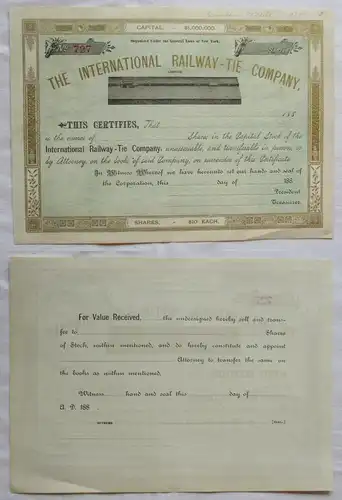 CAPITAL - $1,000,000.
Organized Under the General Laws of New York.
No 797
Shares
THE INTERNATIONAL RAILWAY-TIE COMPANY,
LIMITED
188
THIS CERTIFIES, That
is the owner of Share in the Capital Stock of the
International Railway-Tie Company, unassessable, and transferable in person or
by Attorney, on the books of said Company, on surrender of this Certificate
In Witness Whereof we have hereunto set our hands and seal of
the Corporation, this day of 188
President
Treasurer
SHARES - $10 EACH.
For Value Received, the undersigned hereby sell and trans-
fer to Shares
of Stock, within mentioned, and do hereby constitute and appoint
Attorney to transfer the same on
the books as within mentioned.
Witness hand and seal this day of
A. D. 188
WITNESS
[SEAL]